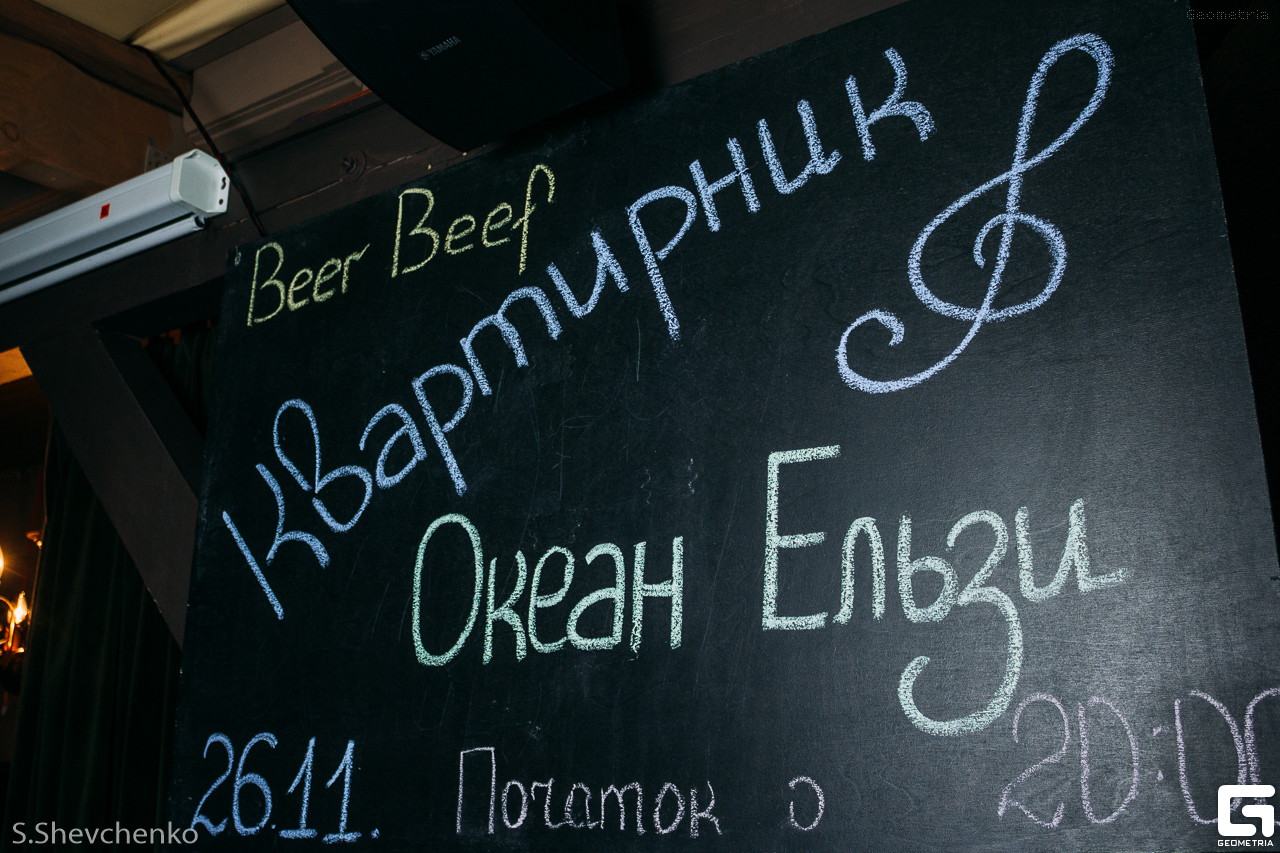 Geometria
YAMAHA
Beer Beef
Квартирник
Океан Ельзи
26.11. Початок о 20:00
S.Shevchenko
GEOMETRIA